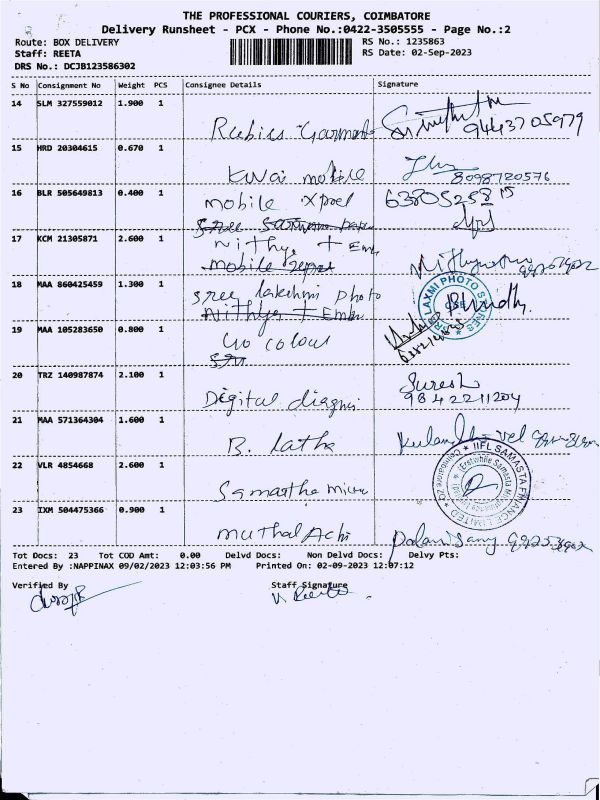 THE PROFESSIONAL COURIERS, COIMBATORE
Delivery Runsheet - PCX - Phone No.:0422-3505555 - Page No.:2
Route: BOX DELIVERY
RS No.: 1235863
Staff: REETA
RS Date: 02-Sep-2023
DRS No.: DCJB123586302
S No Consignment No Weight PCS Consignee Details Signature
14 SLM 327559012 1.900 1
Rubius Garments 9443705979
15 HRD 20304615 0.670 1
Kwai mobile 8098720576
16 BLR 505649813 0.400 1
mobile Xpool 6380525815
17 KCM 21305871 2.600 1
Nithya + Emb
mobile
18 MAA 860425459 1.300 1
Sree lakshmi photo
SRI LAXMI PHOTO STORES
CBE
Nithya + Emb
19 MAA 105283650 0.800 1
Uo colour
20 TRZ 140987874 2.100 1
Suresh
Digital diagni 9842211204
21 MAA 571364304 1.600 1
B. latha
22 VLR 4854668 2.600 1
IIFL SAMASTA FINANCE LIMITED
Coimbatore
Samastha micro
23 IXM 504475366 0.900 1
Muthal Achi
Tot Docs: 23 Tot COD Amt: 0.00 Delvd Docs: Non Delvd Docs: Delvy Pts:
Entered By :NAPPINAX 09/02/2023 12:03:56 PM Printed On: 02-09-2023 12:07:12
Verified By Staff Signature